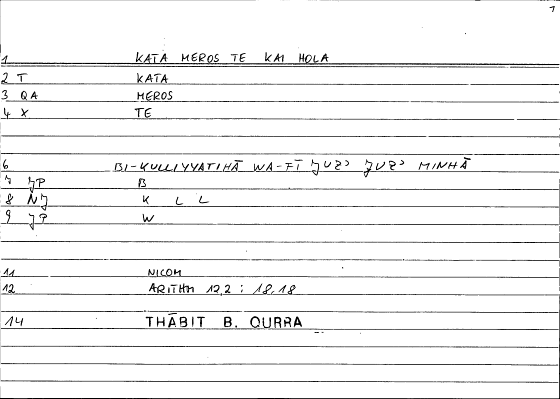 1
1 KATA MEROS TE KAI HOLA
2 T KATA
3 QA MEROS
4 X TE
6 BI-KULLIYYATIHĀ WA-FĪ ǦUZʾ ǦUZʾ MINHĀ
7 ǦP B
8 NǦ K L L
9 ǦP W
11 NICOM
12 ARITHM 12,2 : 18,18
14 THĀBIT B. QURRA